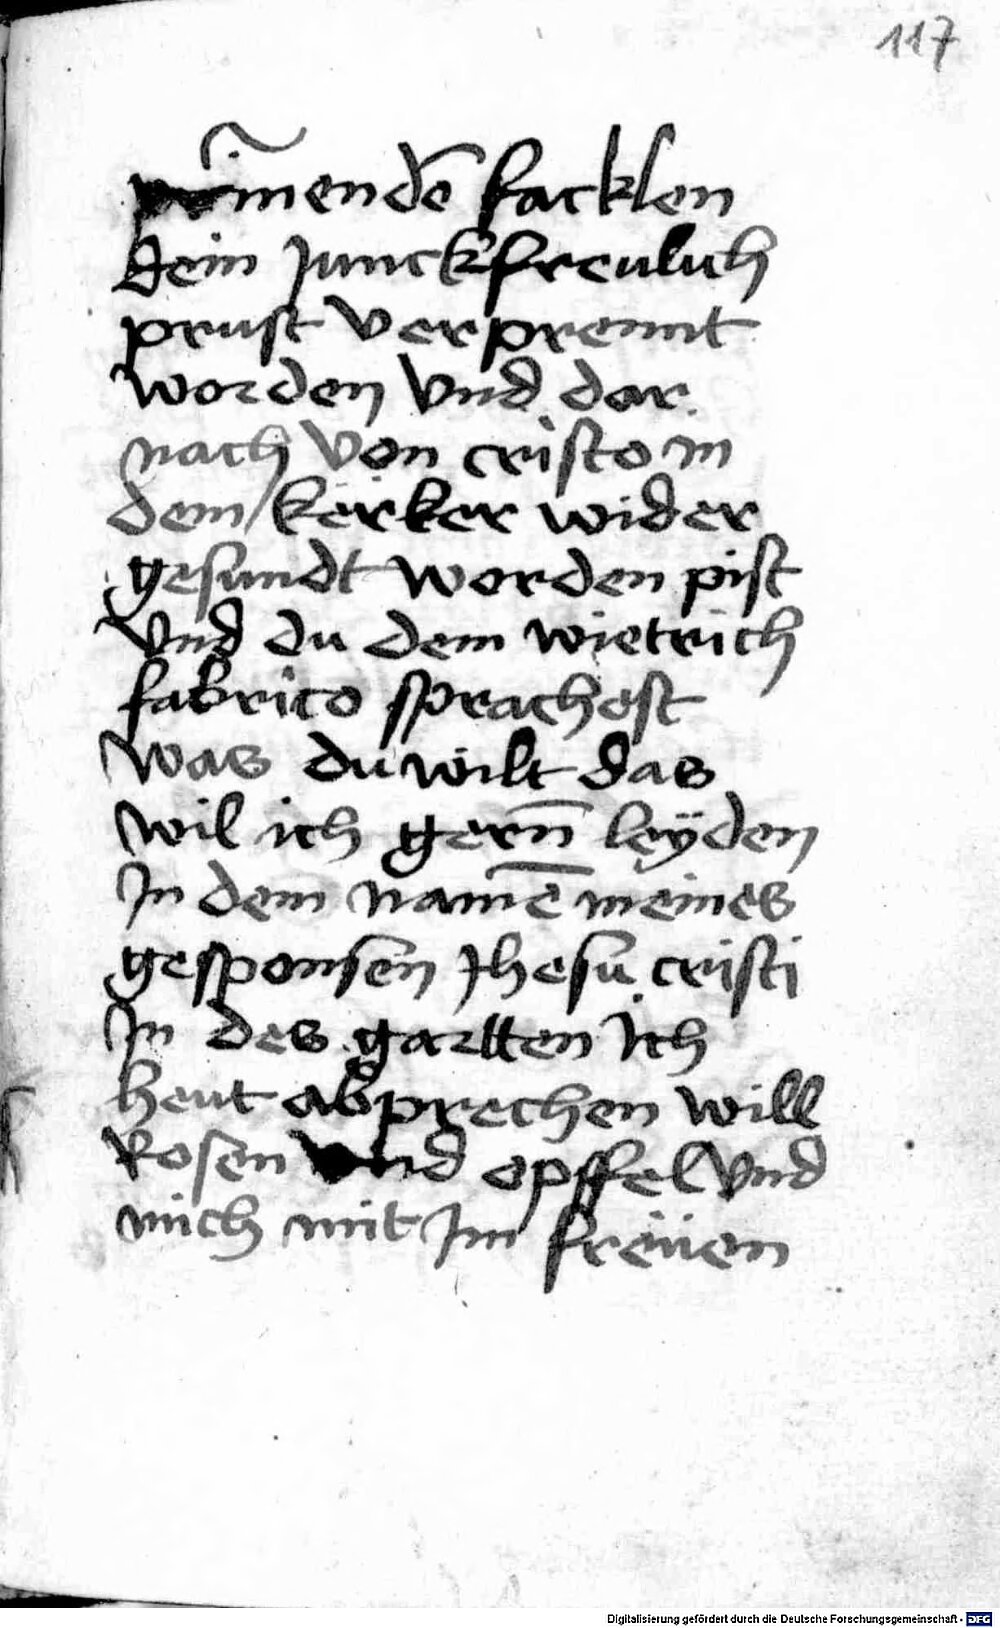 117
prinendē facklen
dein junckfreulich
prust verprennt
worden vnd dar
nach von cristo in
dem kerker wider
gesundt worden pist
vnd du dem wietrich
fabricio sprachest
was du wilt das
wil ich gern̄ leÿden
In dem namē meines
gesponsen Jhesu cristi
In des gartten ich
heut abprechen will
Rosen vnd opffel vnd
mich mit Im freüen
Digitalisierung gefördert durch die Deutsche Forschungsgemeinschaft - DFG